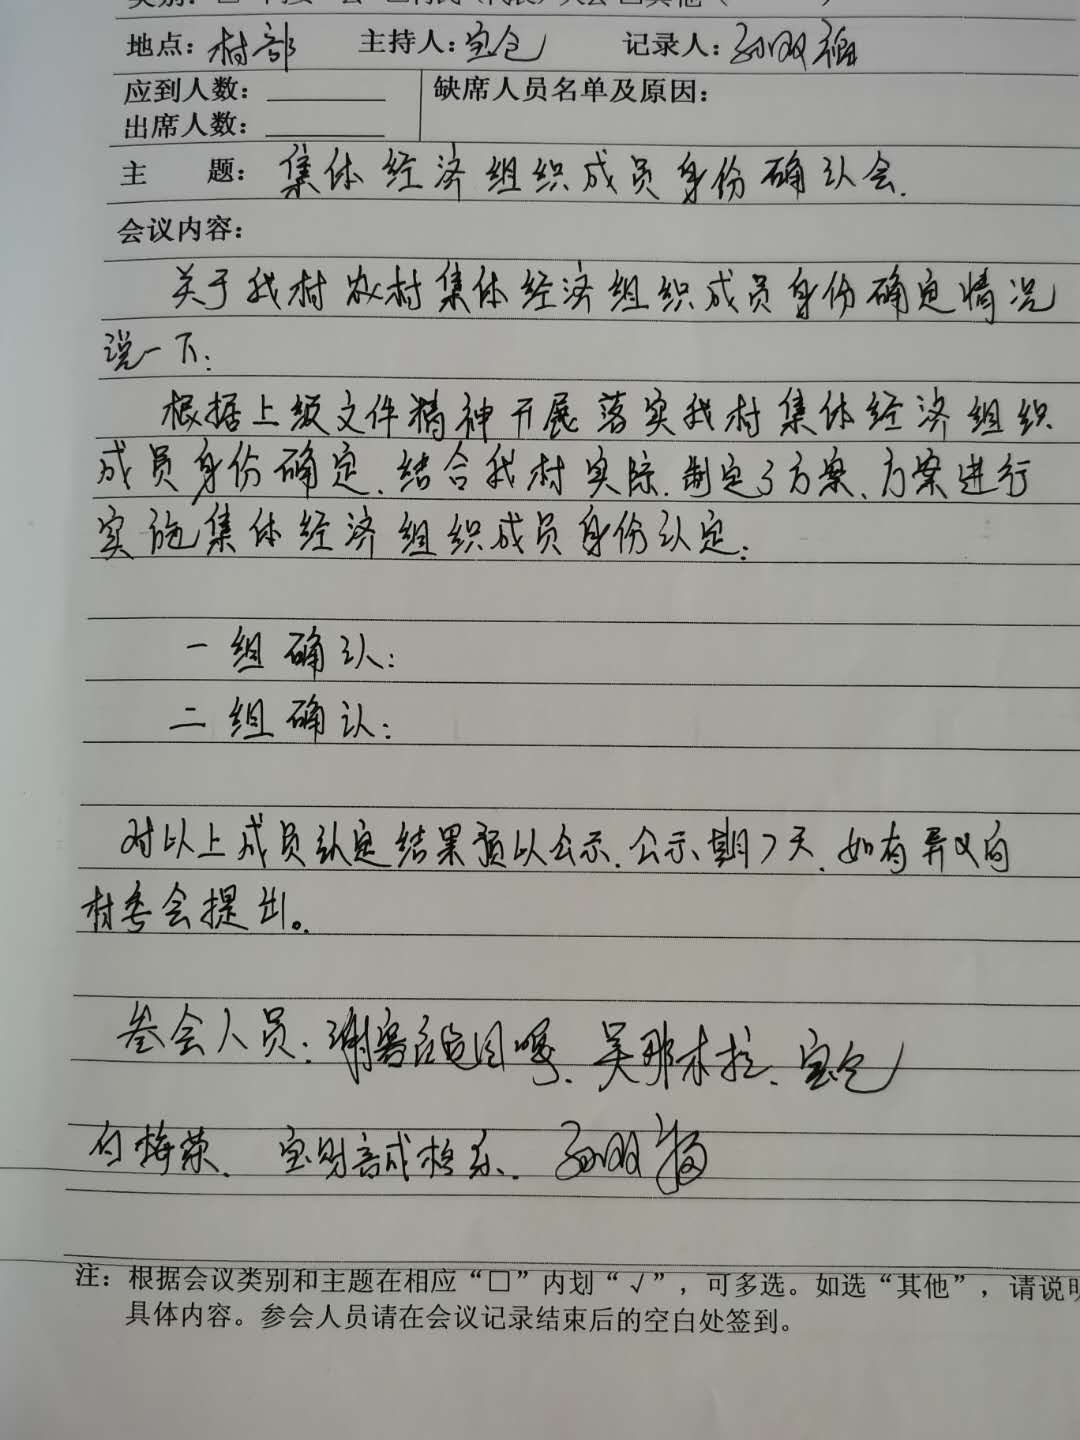 地点：村部 主持人：宝仓 记录人：孙双福
应到人数： 缺席人员名单及原因：
出席人数：
主 题：集体经济组织成员身份确认会.
会议内容：
关于我村农村集体经济组织成员身份确定情况
说一下：
根据上级文件精神开展落实我村集体经济组织
成员身份确定.结合我村实际.制定了方案、方案进行
实施集体经济组织成员身份认定：
一组确认：
二组确认：
对以上成员认定结果预以公示.公示期7天.如有异议向
村委会提出。
参会人员： 吴那木拉、宝仓
白梅荣、 孙双福
注：根据会议类别和主题在相应“□”内划“√”，可多选。如选“其他”，请说明
具体内容。参会人员请在会议记录结束后的空白处签到。